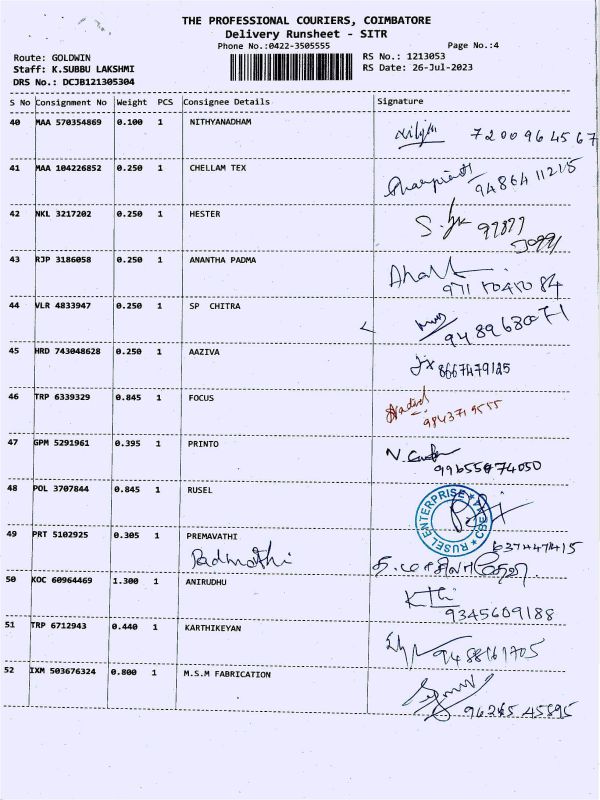 THE PROFESSIONAL COURIERS, COIMBATORE
Delivery Runsheet - SITR
Phone No.:0422-3505555 Page No.:4
Route: GOLDWIN RS No.: 1213053
Staff: K.SUBBU LAKSHMI RS Date: 26-Jul-2023
DRS No.: DCJB121305304
S No Consignment No Weight PCS Consignee Details Signature
40 MAA 570354869 0.100 1 NITHYANADHAM 7200964567
41 MAA 104226852 0.250 1 CHELLAM TEX 9486411215
42 NKL 3217202 0.250 1 HESTER
43 RJP 3186058 0.250 1 ANANTHA PADMA
44 VLR 4833947 0.250 1 SP CHITRA
45 HRD 743048628 0.250 1 AAZIVA 8667479125
46 TRP 6339329 0.845 1 FOCUS 9843719555
47 GPM 5291961 0.395 1 PRINTO
48 POL 3707844 0.845 1 RUSEL RUSEL ENTERPRISE ★ CBE
49 PRT 5102925 0.305 1 PREMAVATHI
Padmathi
50 KOC 60964469 1.300 1 ANIRUDHU 9345609188
51 TRP 6712943 0.440 1 KARTHIKEYAN 9488161705
52 IXM 503676324 0.800 1 M.S.M FABRICATION 96265 45895